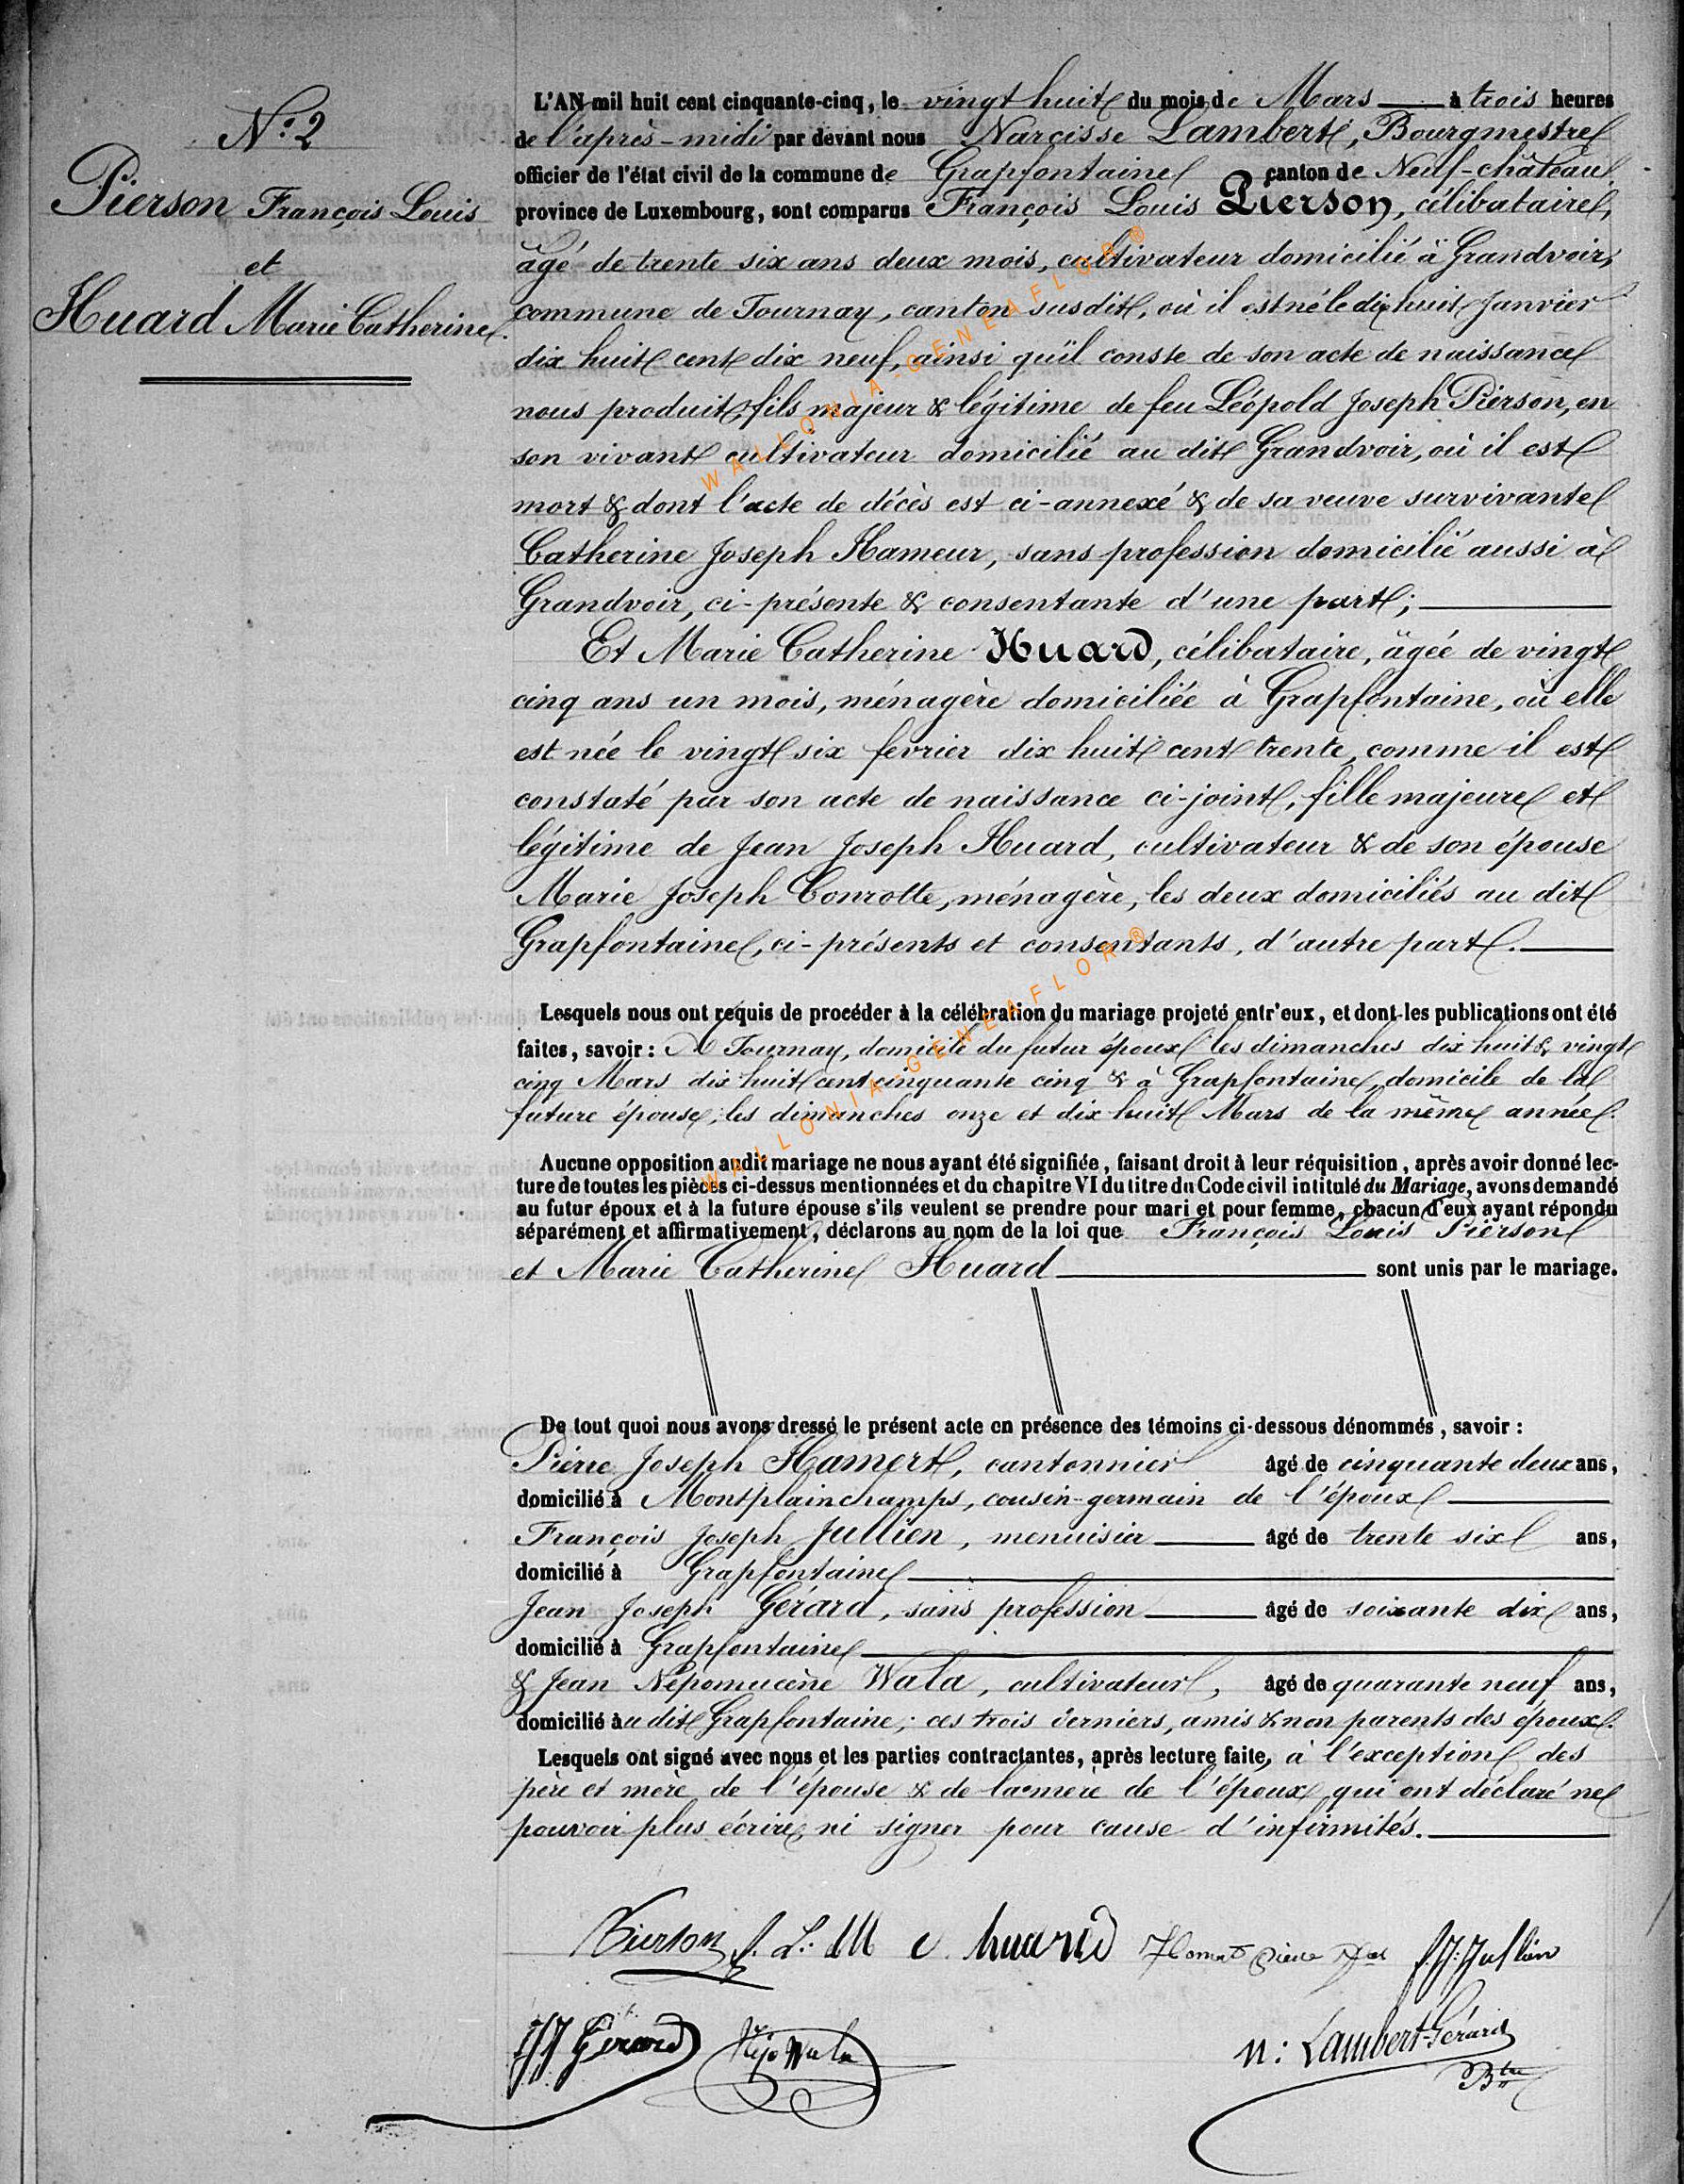 N.º 2
Pierson François Louis
et
Huard Marie Catherine.
L'AN mil huit cent cinquante-cinq, le vingt huit du mois de Mars à trois heures
de l'après-midi par devant nous Narcisse Lambert, Bourgmestre
officier de l'état civil de la commune de Grapfontaine canton de Neuf-château
province de Luxembourg, sont comparus François Louis Pierson, célibataire,
âgé de trente six ans deux mois, cultivateur domicilié à Grandvoir,
commune de Tournay, canton susdit, où il est né le dix huit Janvier
dix huit cent dix neuf, ainsi qu'il conste de son acte de naissance
nous produit, fils majeur & légitime de feu Léopold Joseph Pierson, en
son vivant cultivateur domicilié au dit Grandvoir, où il est
mort & dont l'acte de décès est ci-annexé & de sa veuve survivante
Catherine Joseph Hameur, sans profession domicilié aussi à
Grandvoir, ci-présente & consentante d'une part;
Et Marie Catherine Huard, célibataire, âgée de vingt
cinq ans un mois, ménagère domiciliée à Grapfontaine, où elle
est née le vingt six fevrier dix huit cent trente, comme il est
constaté par son acte de naissance ci-joint, fille majeure et
légitime de Jean Joseph Huard, cultivateur & de son épouse
Marie Joseph Conrotte, ménagère, les deux domiciliés au dit
Grapfontaine, ci-présents et consentants, d'autre part.
Lesquels nous ont requis de procéder à la célébration du mariage projeté entr'eux, et dont les publications ont été
faites, savoir: A Tournay, domicile du futur époux les dimanches dix huit & vingt
cinq Mars dix huit cent cinquante cinq & à Grapfontaine, domicile de la
future épouse, les dimanches onze et dix huit Mars de la même année.
Aucune opposition audit mariage ne nous ayant été signifiée, faisant droit à leur réquisition, après avoir donné lec-
ture de toutes les pièces ci-dessus mentionnées et du chapitre VI du titre du Code civil intitulé du Mariage, avons demandé
au futur époux et à la future épouse s'ils veulent se prendre pour mari et pour femme, chacun d'eux ayant répondu
séparément et affirmativement, déclarons au nom de la loi que François Louis Pierson
et Marie Catherine Huard sont unis par le mariage.
De tout quoi nous avons dressé le présent acte en présence des témoins ci-dessous dénommés, savoir:
Pierre Joseph Hamert, cantonnier âgé de cinquante deux ans,
domicilié à Montplainchamps, cousin-germain de l'époux
François Joseph Jullien, menuisier âgé de trente six ans,
domicilié à Grapfontaine
Jean Joseph Gérard, sans profession âgé de soixante dix ans,
domicilié à Grapfontaine
& Jean Népomucène Wala, cultivateur, âgé de quarante neuf ans,
domicilié au dit Grapfontaine; ces trois derniers, amis & non parents des époux.
Lesquels ont signé avec nous et les parties contractantes, après lecture faite, à l'exception des
père et mère de l'épouse & de la mère de l'époux qui ont déclaré ne
pouvoir plus écrire, ni signer pour cause d'infirmités.
Pierson f. L. M c. huard Hamert Pierre Jos f. J. Jullien
JJ Gérard Wala N: Lambert-Gérard
Btre
WALLONIA-GENEAFLOR®
WALLONIA-GENEAFLOR®